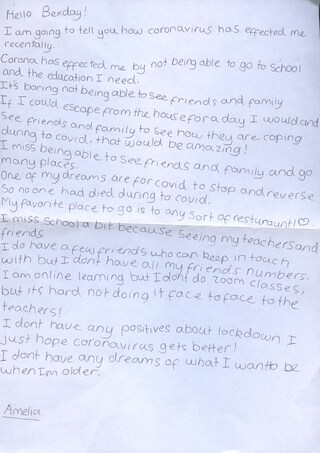 Hello Bexday!
I am going to tell you how coronavirus has effected me
recentally.
Corona has effected me by not being able to go to School
and the education I need.
It's boring not being able to see friends and family
If I could escape from the house for a day I would and
see friends and family to see how they are coping
during to covid, that would be amazing!
I miss being able to see friends and family and go
many places.
One of my dreams are for covid to stop and reverse
So no one had died during to covid.
My favorite place to go is to any sort of resturaunt!♡
I miss School a bit because seeing my teachers and
friends
I do have a few friends who can keep in touch
with but I dont have all my friends numbers.
I am online learning but I dont do zoom classes,
but its hard not doing it face to face to the
teachers!
I dont have any positives about lockdown I
just hope coronavirus gets better!
I dont have any dreams of what I want to be
when Im older.
Amelia